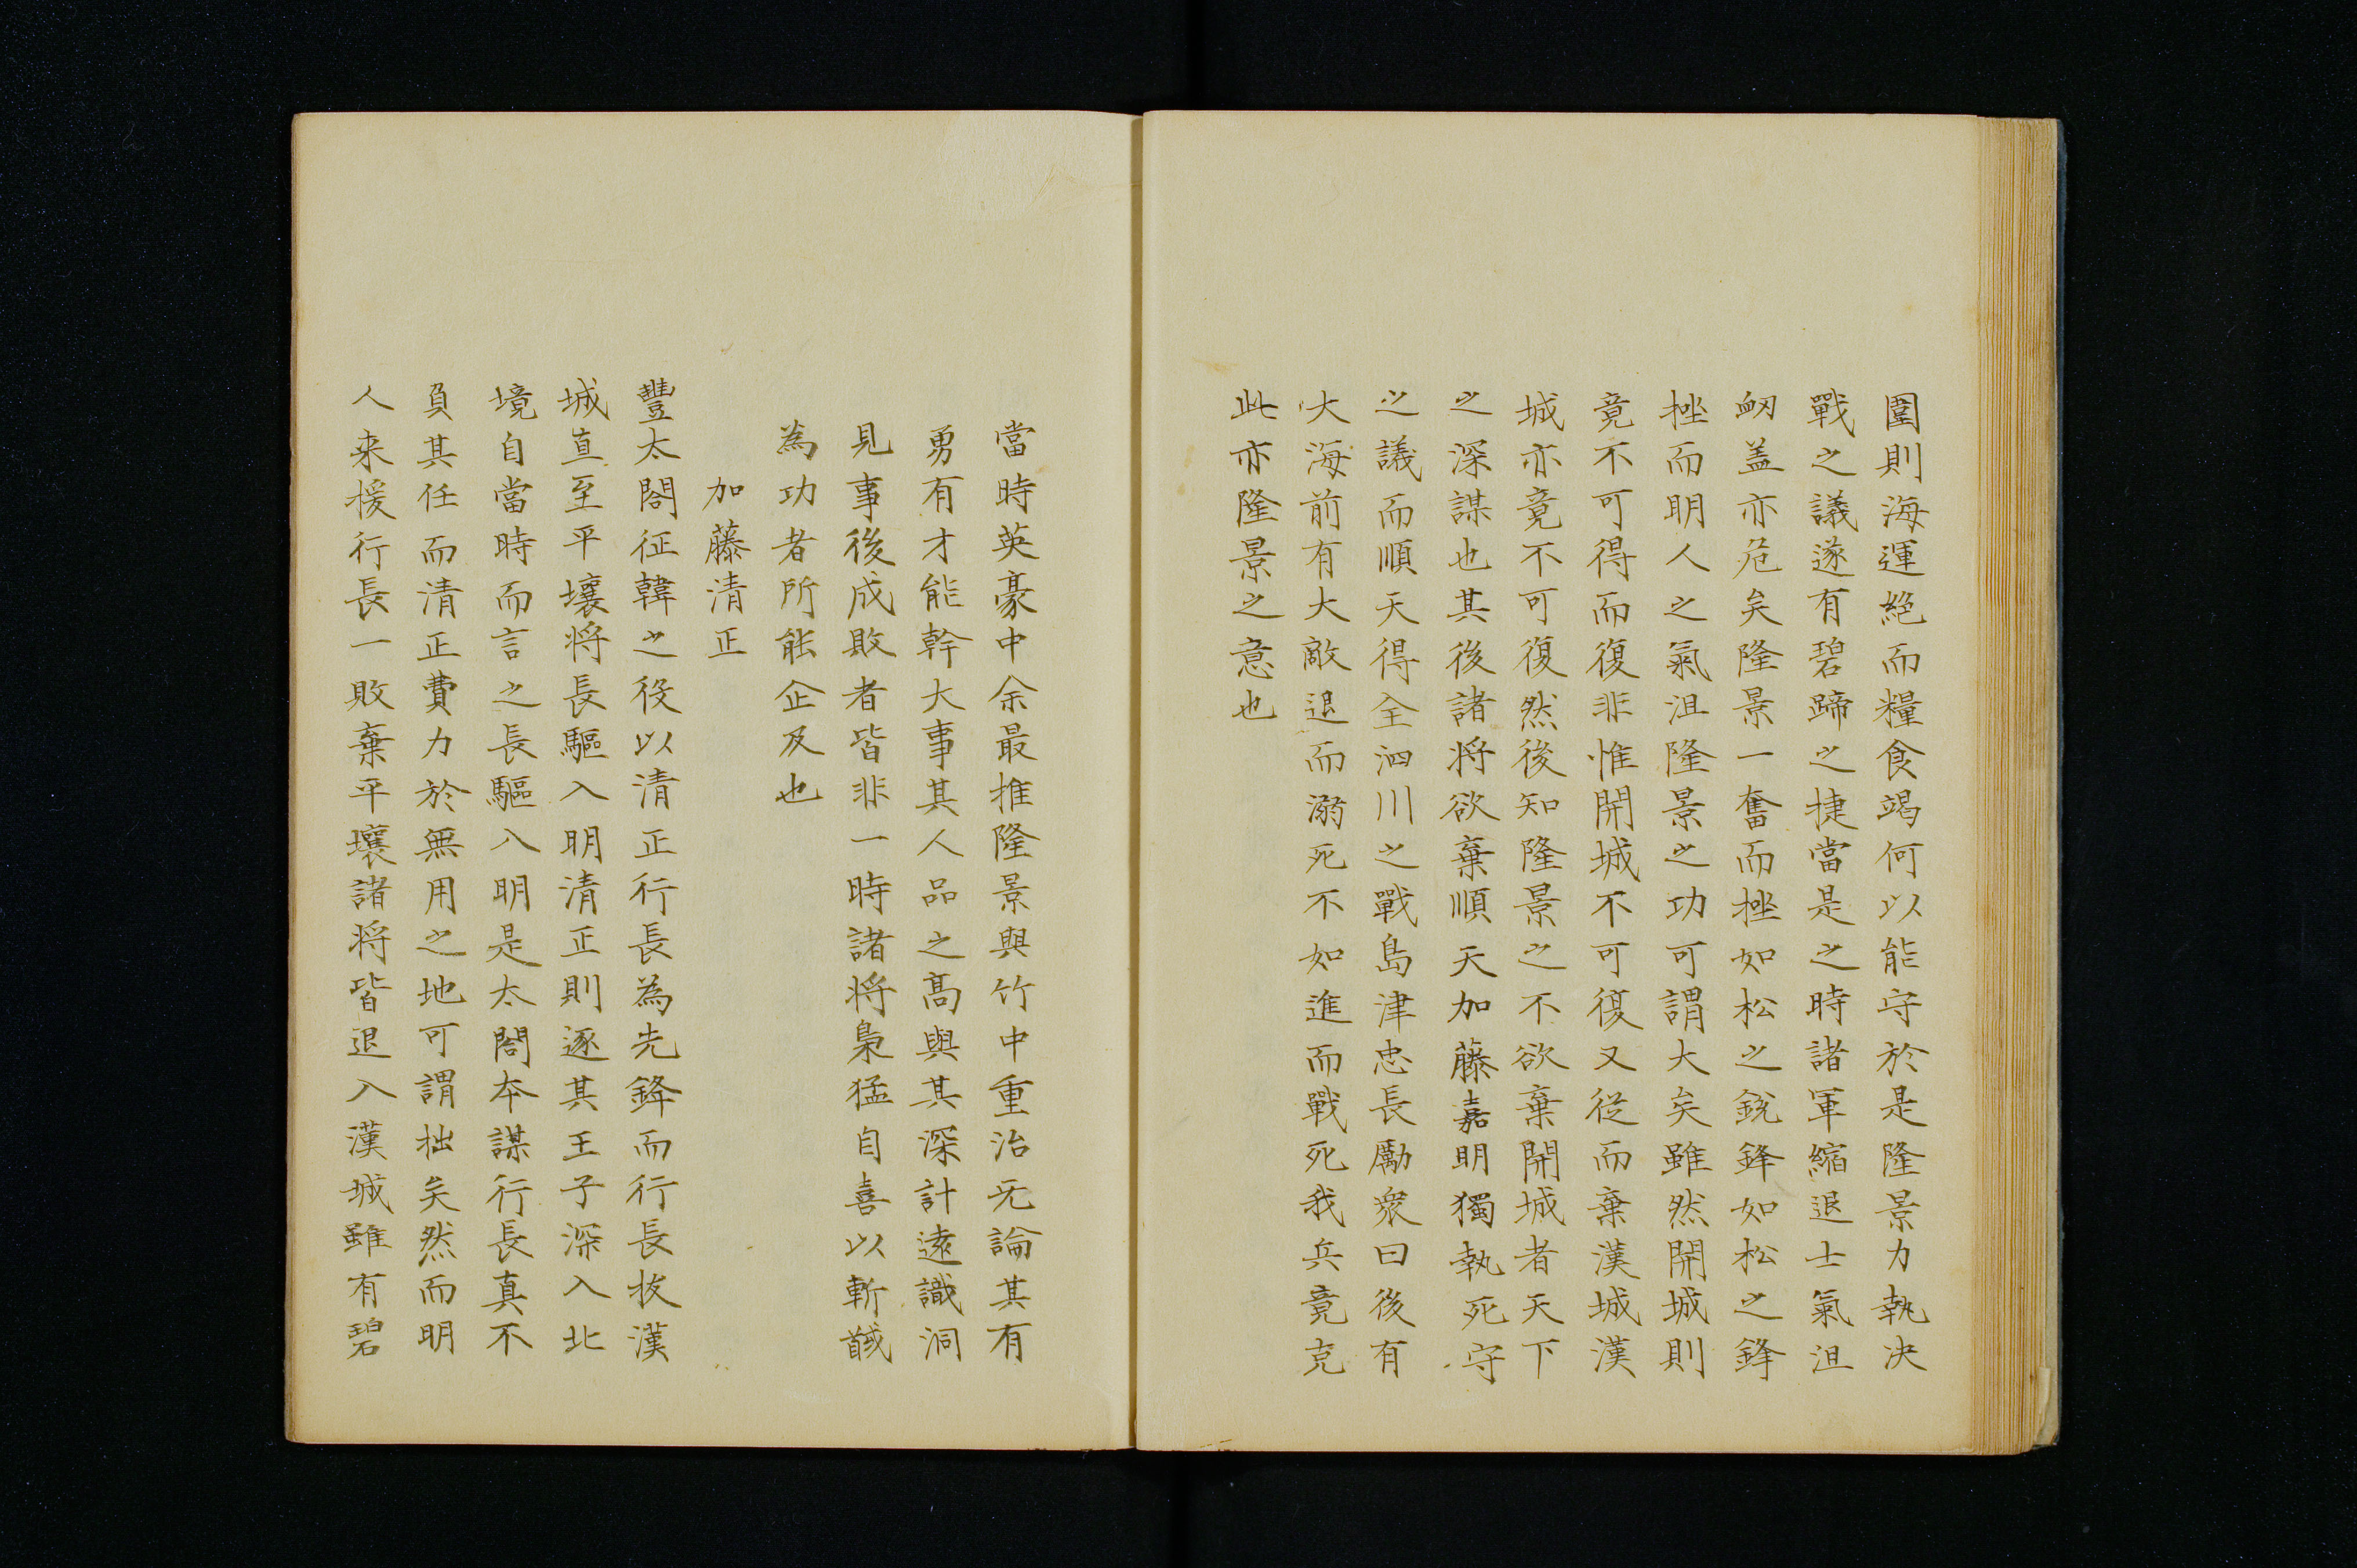 圍則海運絶而糧食竭何以能守於是隆景力執決
戰之議遂有碧蹄之捷當是之時諸軍縮退士氣沮
衂盖亦危矣隆景一奮而挫如松之銳鋒如松之鋒
挫而明人之氣沮隆景之功可謂大矣雖然開城則
竟不可得而復非惟開城不可復又従而棄漢城漢
城亦竟不可復然後知隆景之不欲棄開城者天下
之深謀也其後諸将欲棄順天加藤嘉明獨執死守
之議而順天得全泗川之戰島津忠長勵衆曰後有
大海前有大敵退而溺死不如進而戰死我兵竟克
此亦隆景之意也
當時英豪中余最推隆景與竹中重治无論其有
勇有才能幹大事其人品之髙與其深計遠識洞
見事後成敗者皆非一時諸将梟猛自喜以斬馘
為功者所能企及也
加藤清正
豐太閤征韓之役以清正行長為先鋒而行長抜漢
城直至平壤将長驅入明清正則逐其王子深入北
境自當時而言之長驅入明是太閤本謀行長真不
負其任而清正費力於無用之地可謂拙矣然而明
人来援行長一敗棄平壤諸将皆退入漢城雖有碧